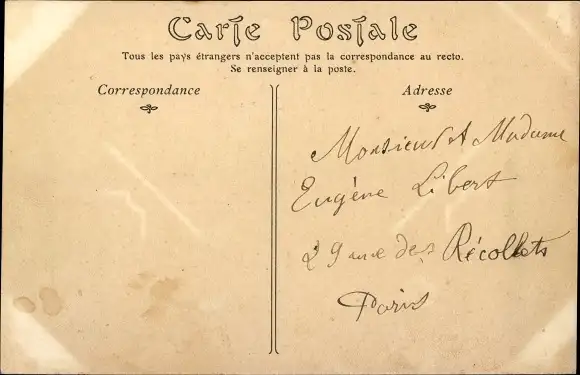 Carte Postale
Tous les pays étrangers n'acceptent pas la correspondance au recto.
Se renseigner à la poste.
Correspondance
Adresse
Monsieur et Madame
Eugène Libert
29 rue des Récollets
Paris